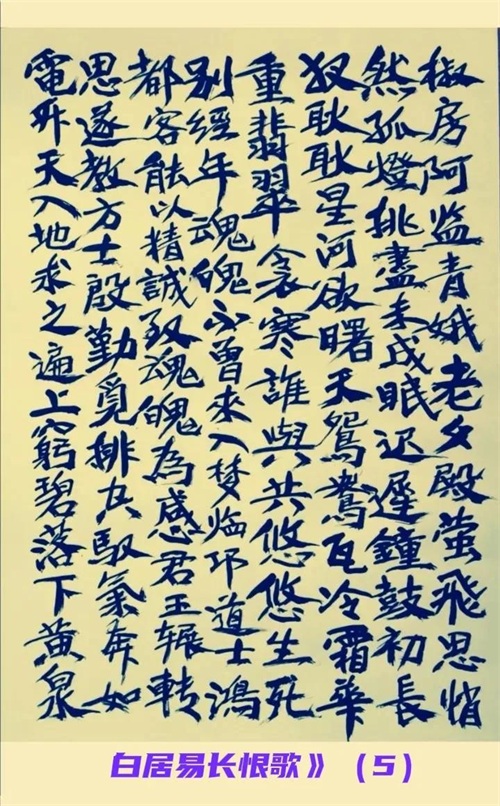 椒房阿监青娥老夕殿萤飛思悄
然孤燈挑盡未成眠迟遲鐘鼓初長
夜耿耿星河欲曙天鴛鴦瓦冷霜華
重翡翠衾寒誰與共悠悠生死
别經年魂魄不曾来入梦临邛道士鴻
都客能以精誠致魂魄為感君王辗轉
思遂教方士殷勤覓排空馭氣奔如
電升天入地求之遍上窮碧落下黄泉
白居易长恨歌》（5）